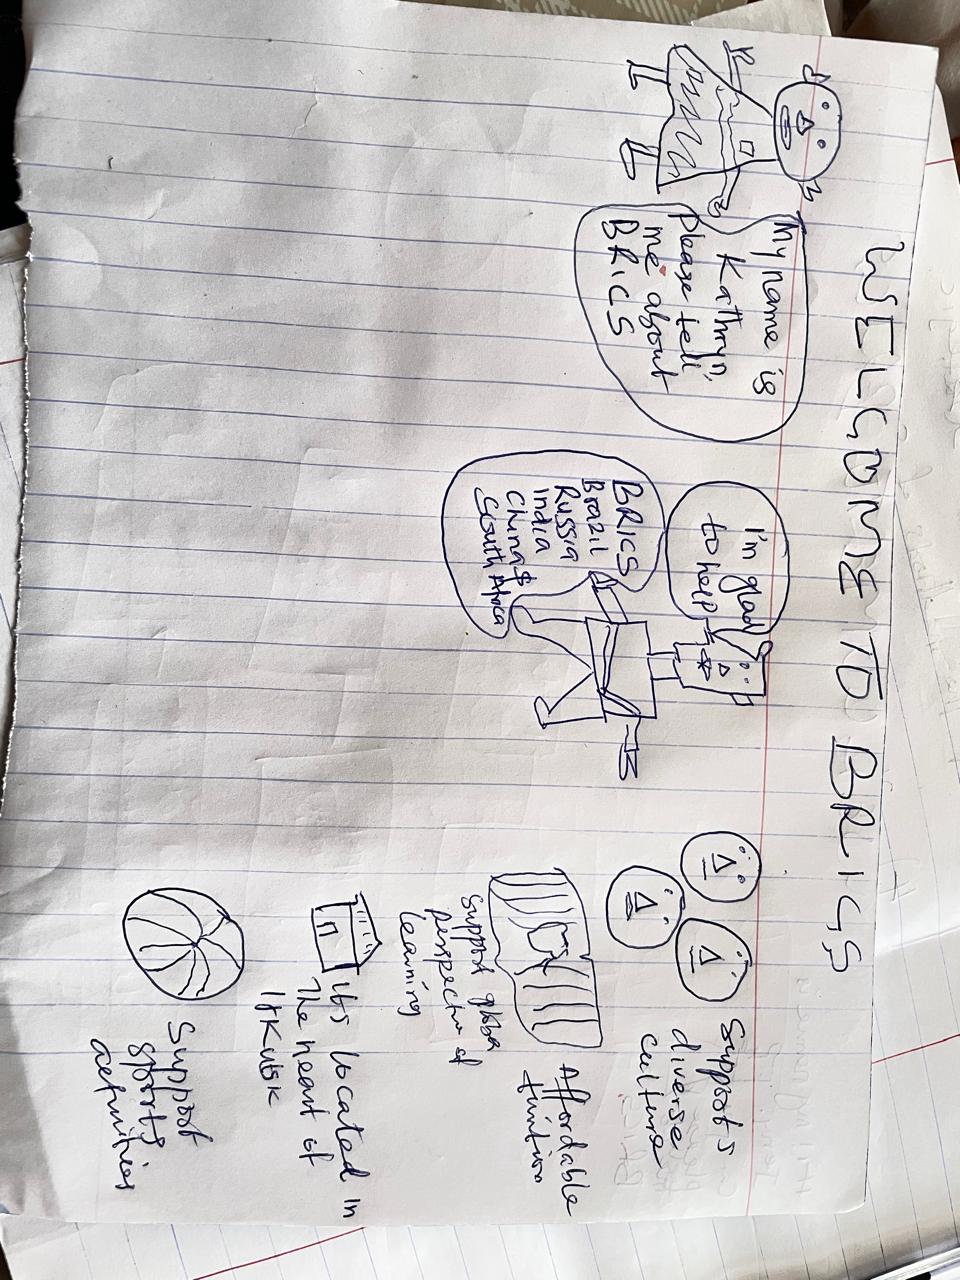 WELCOME TO BRICS
My name is
Kathryn,
Please tell
me about
BRICS
I'm glad
to help
BRICS
Brazil
Russia
India
China $
South Africa
Supports
diverse
culture
Affordable
tuition
Support
perspective of
learning
Its located in
The heart of
Support
sports
activities